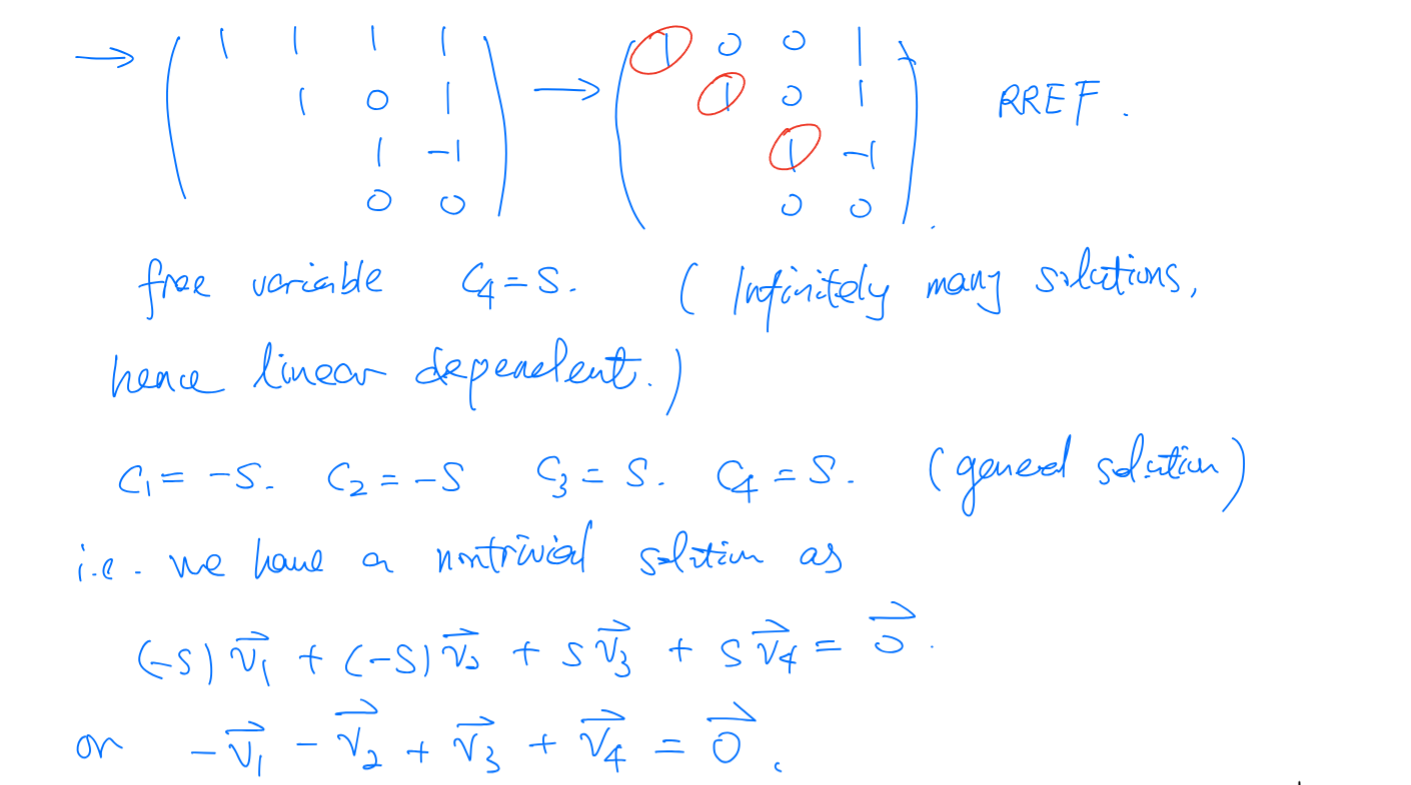 → ( 1 1 1 1 ) → ( 1 0 0 1 )
1 0 1 1 0 1 RREF.
1 -1 1 -1
0 0 0 0 .
free variable C₄ = S. ( Infinitely many solutions,
hence linear dependent. )
C₁ = -S. C₂ = -S C₃ = S. C₄ = S. (general solution)
i.e. we have a nontrivial solution as
(-S) v⃗₁ + (-S) v⃗₂ + S v⃗₃ + S v⃗₄ = 0⃗.
or -v⃗₁ - v⃗₂ + v⃗₃ + v⃗₄ = 0⃗.